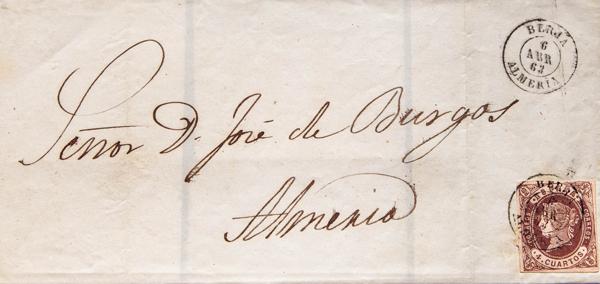 BERJA
6
ABR
63
ALMERIA
Señor D. José de Burgos
Almeria
BERJA
4 CUARTOS